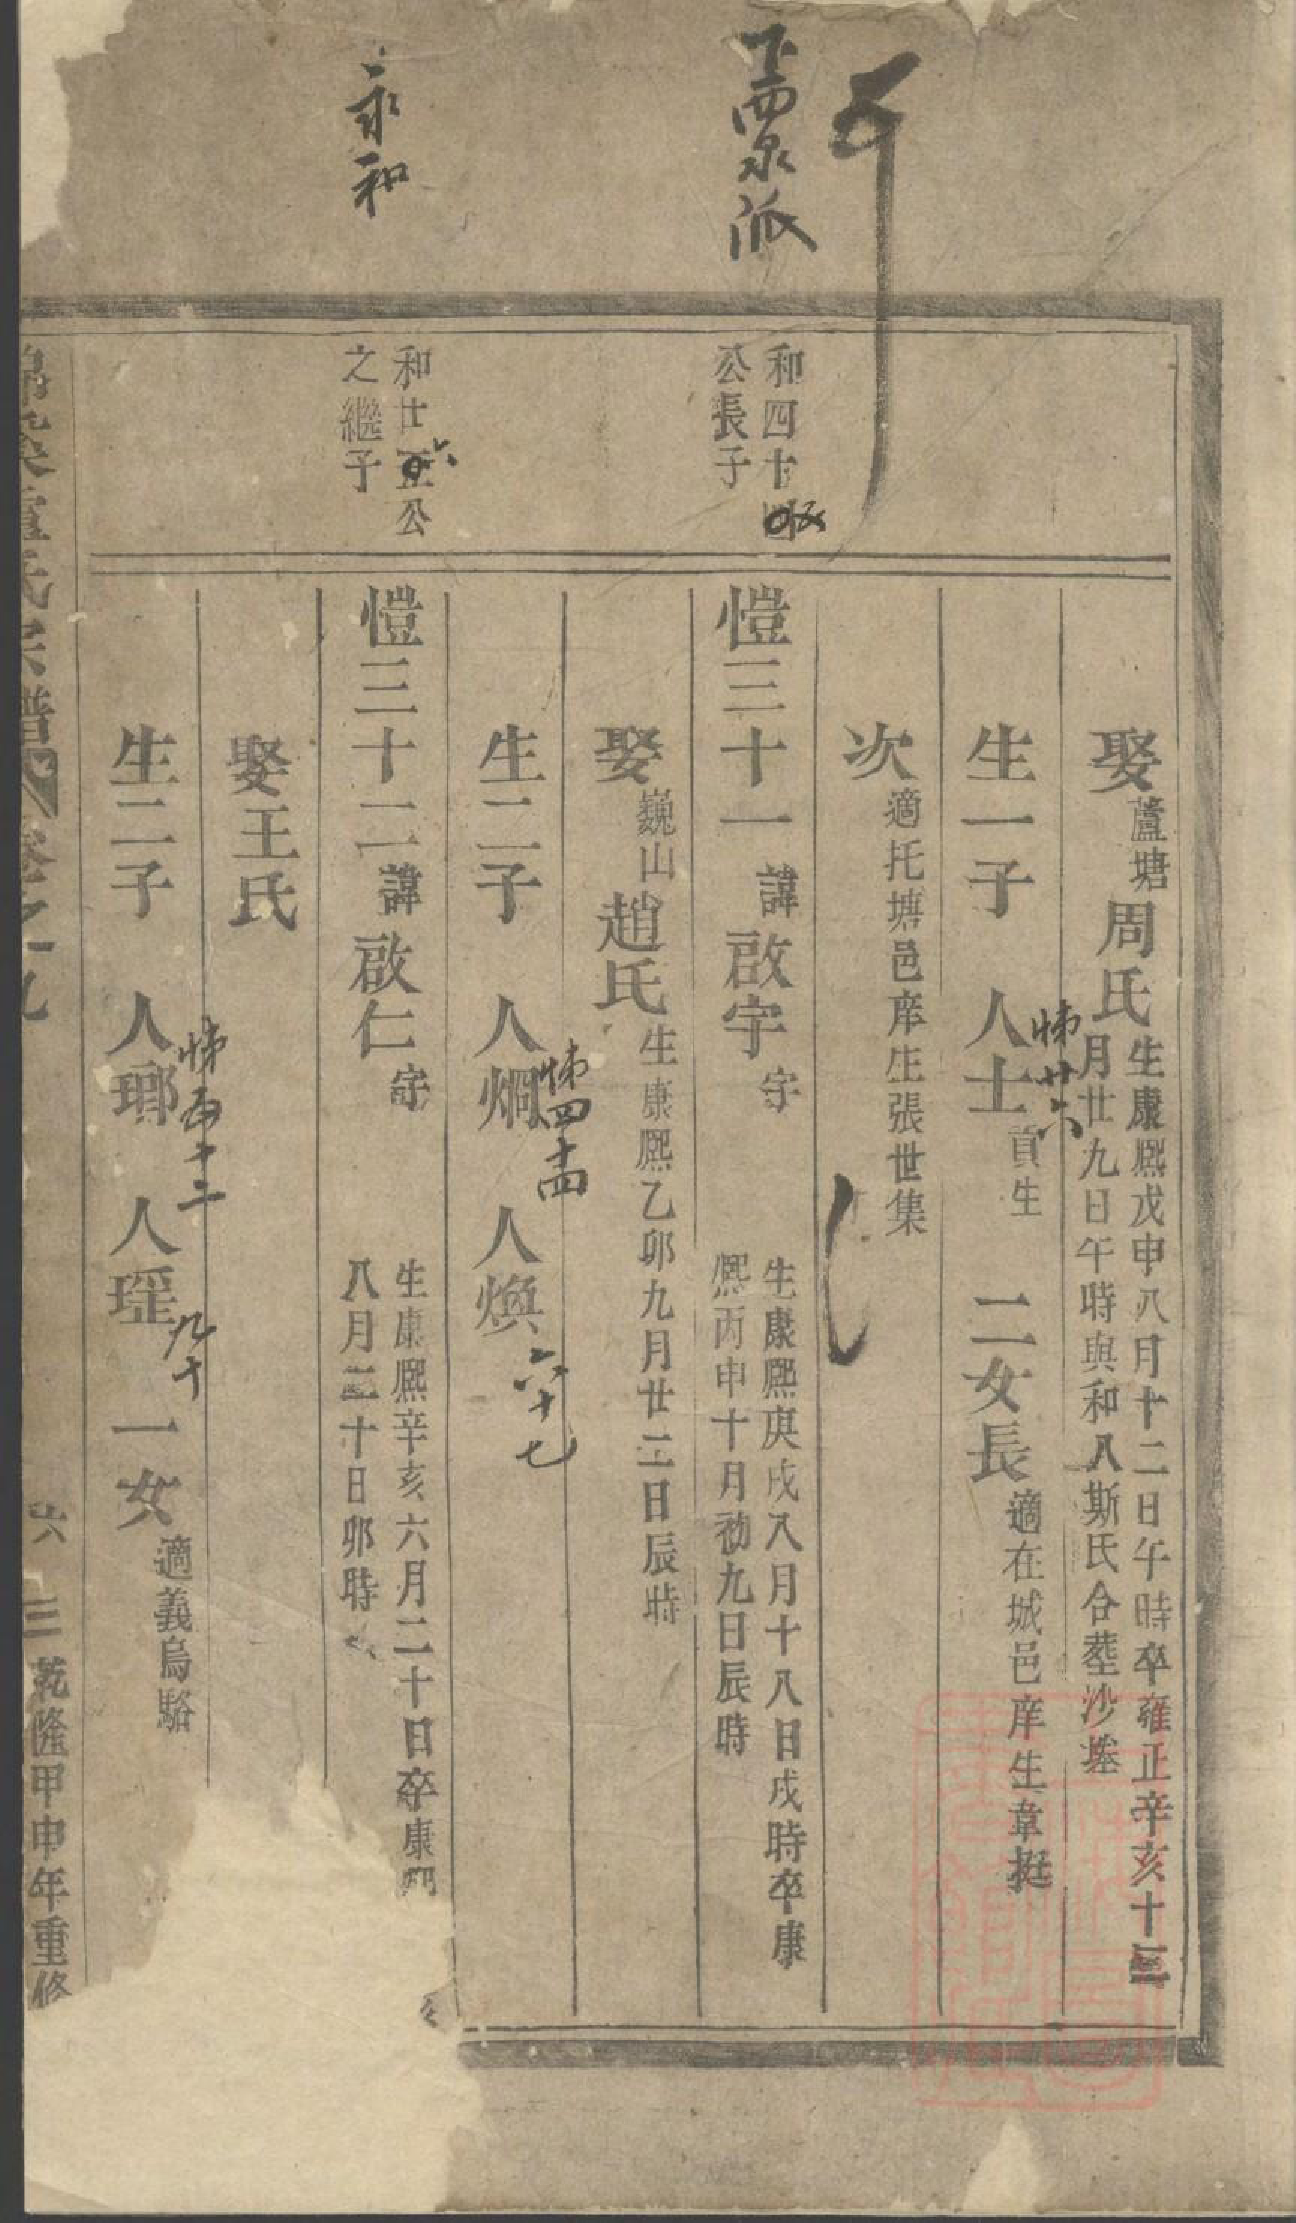 娶蘆塘周氏生康熙戊申八月十二日午時卒雍正辛亥十二
月廿九日午時與和八斯氏合塟沙塟
生一子 人士貢生 二女長適在城邑庠生韋挺
悌廿六
次適托塘邑庠生張世集
西泉派
和四十
公長子
愷三十一諱啟宇字 生康熙庚戌八月十八日戌時卒康
熙丙申十月初九日辰時
娶巍山趙氏生康熙乙卯九月廿二日辰時
生二子 人烱 人煥
悌四十四
六十七
永和
和廿 公
之繼子
愷三十二諱啟仁字 生康熙辛亥六月二十日卒康熙
八月二十日卯時
娶王氏
生二子 人瑯 人瑶 一女適義烏駱
悌五十二
九十
氏宗譜 卷之一九
六 三 乾隆甲申年重修